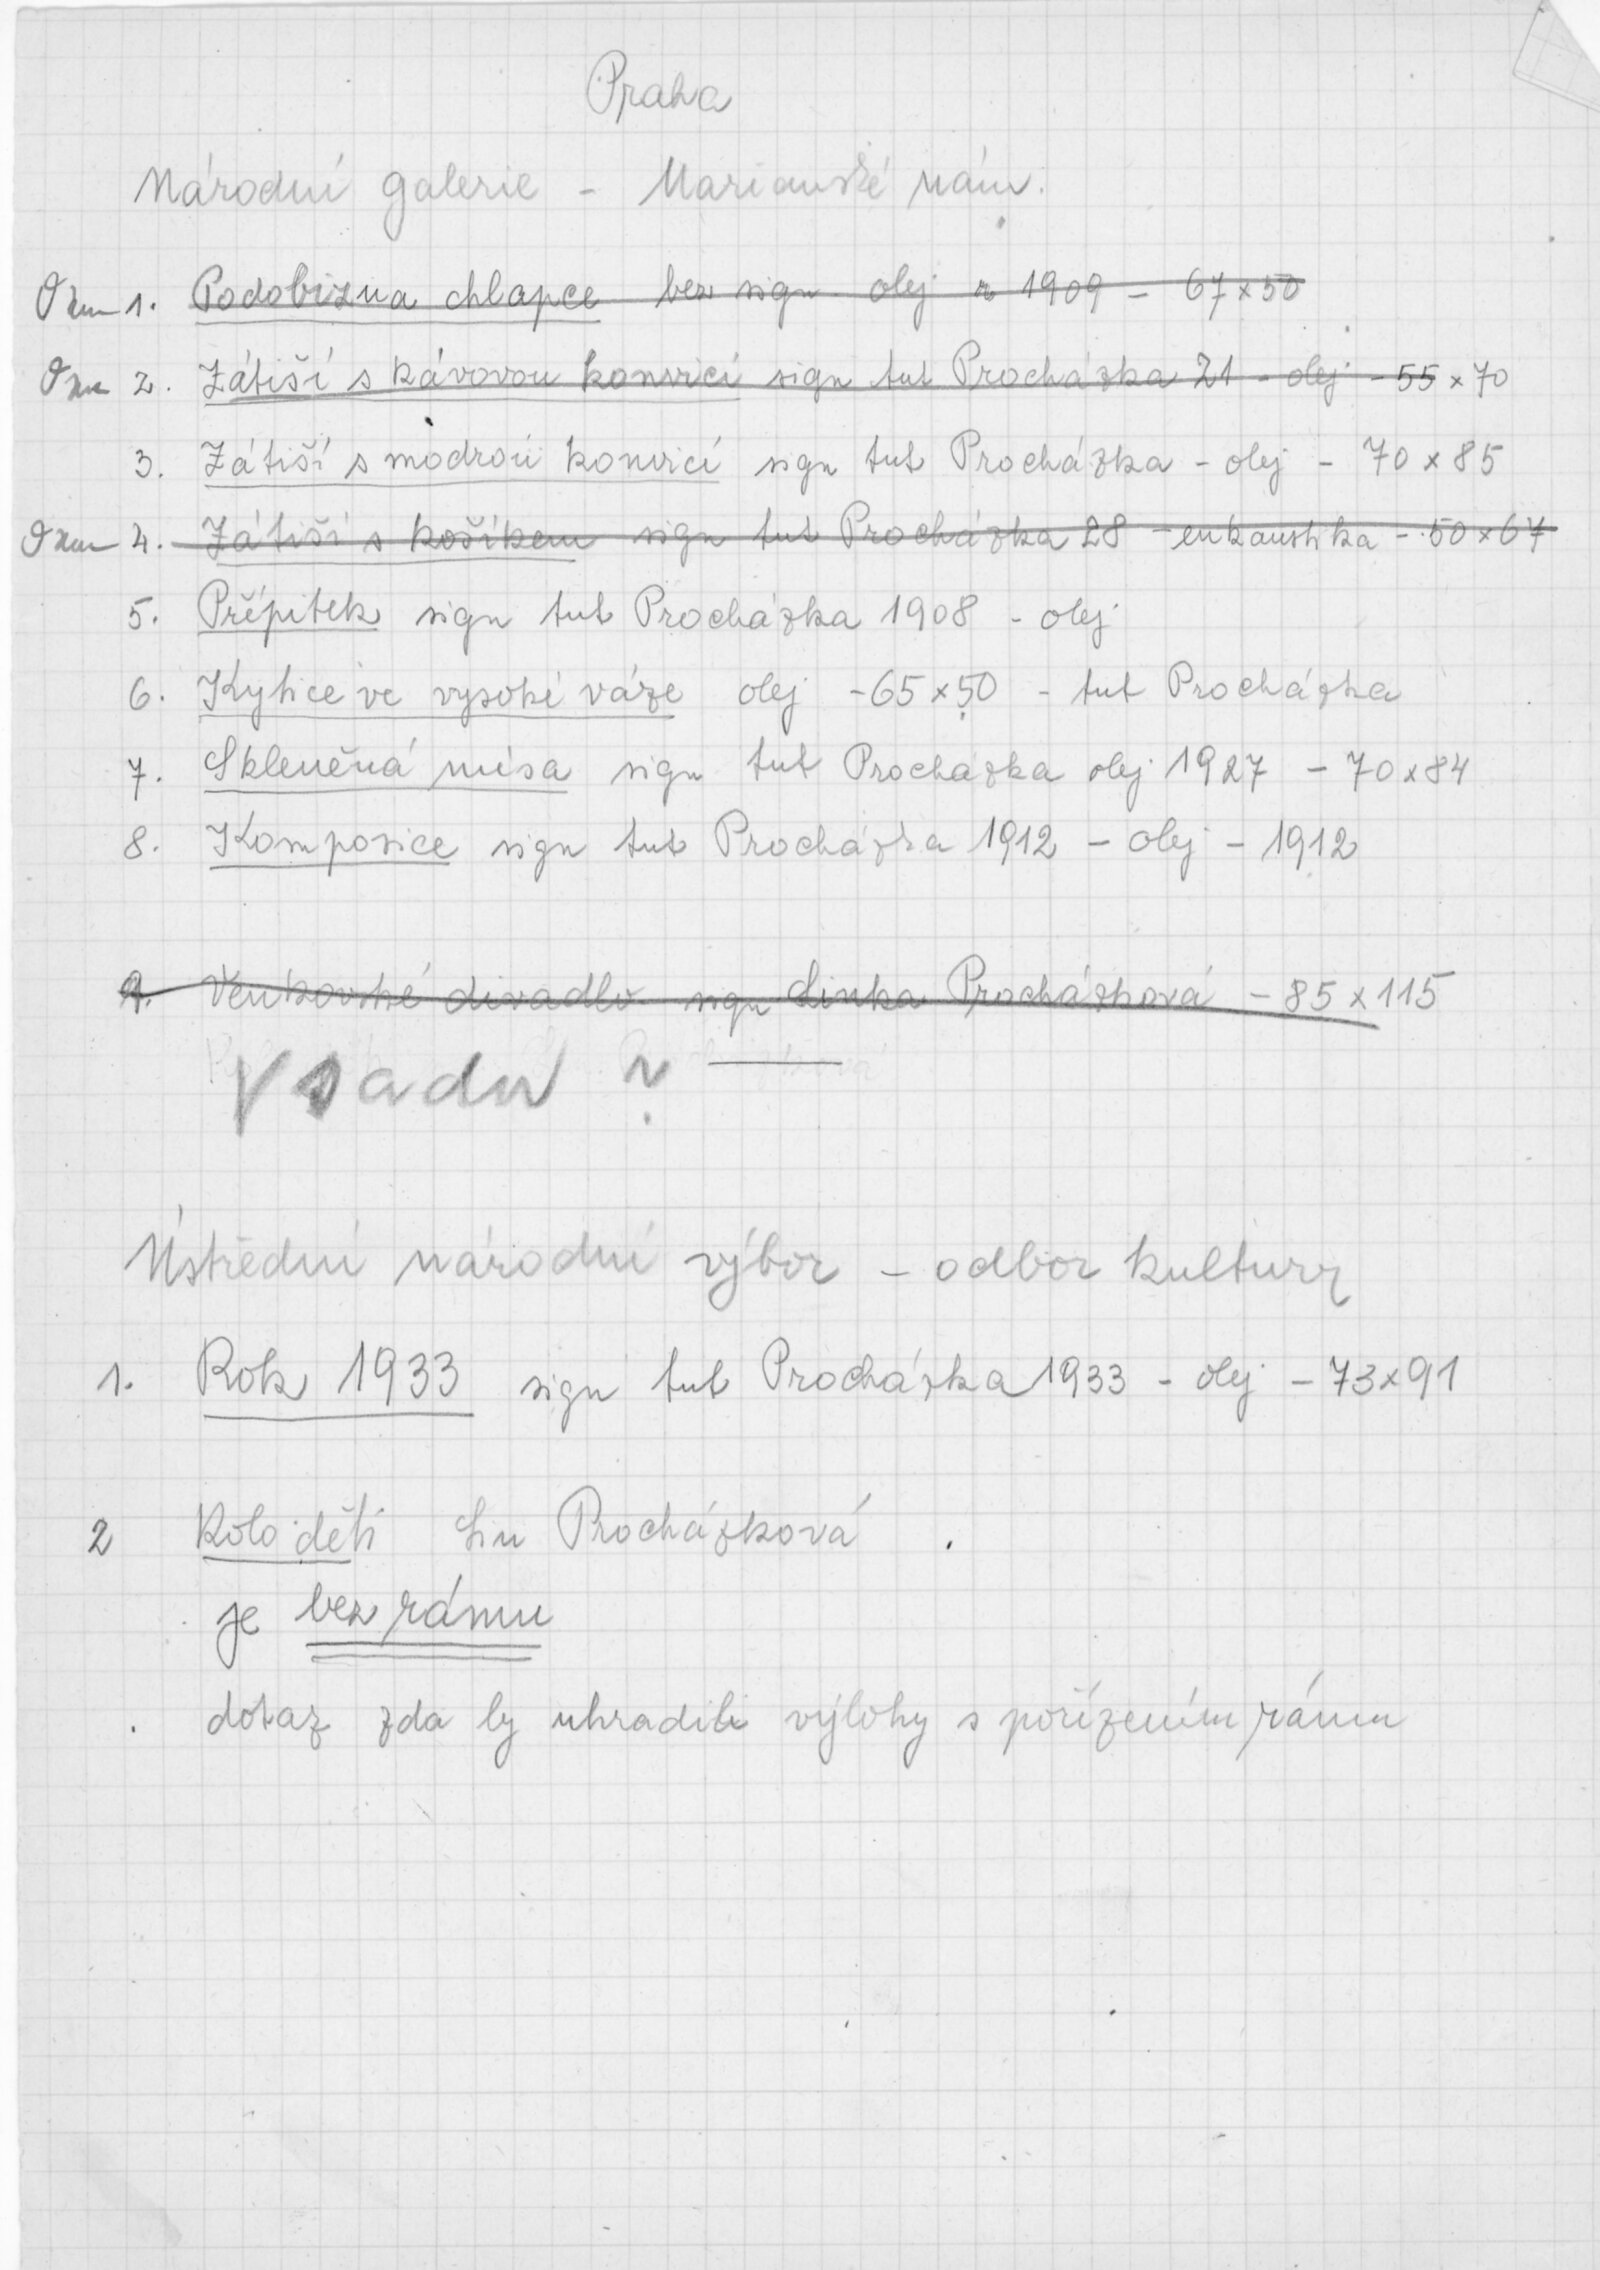 Praha
Národní galerie - Marianské nám.
1. Podobizna chlapce bez sign. olej z 1909 - 67x50
2. Zátiší s kávovou konvicí sign tut Procházka 21 - olej - 55x70
3. Zátiší s modrou konvicí sign tut Procházka - olej - 70x85
4. Zátiší s košíkem sign tut Procházka 28 - enkaustika - 50x67
5. Přípitek sign tut Procházka 1908 - olej
6. Kytice ve vysoké váze olej - 65x50 - tut Procházka
7. Skleněná mísa sign tut Procházka olej 1927 - 70x84
8. Komposice sign tut Procházka 1912 - olej - 1912
9. Venkovské divadlo sign Linka Procházková - 85x115
V sadu ?
Ústřední národní výbor - odbor kultury
1. Rok 1933 sign tut Procházka 1933 - olej - 73x91
2 Kolo dětí Lin Procházková
je bez rámu
dotaz zda by uhradili výlohy s pořízením rámu